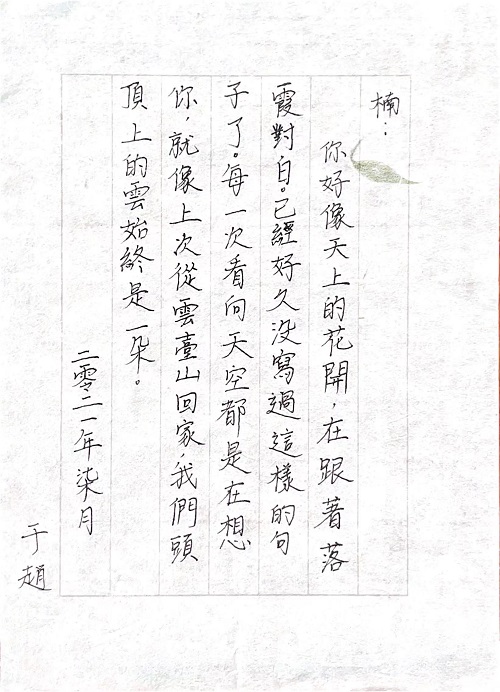 楠：
你好像天上的花開，在跟著落
霞對白。已經好久沒寫過這樣的句
子了。每一次看向天空都是在想
你，就像上次從雲臺山回家，我們頭
頂上的雲始終是一朵。
二零二一年柒月
于趙